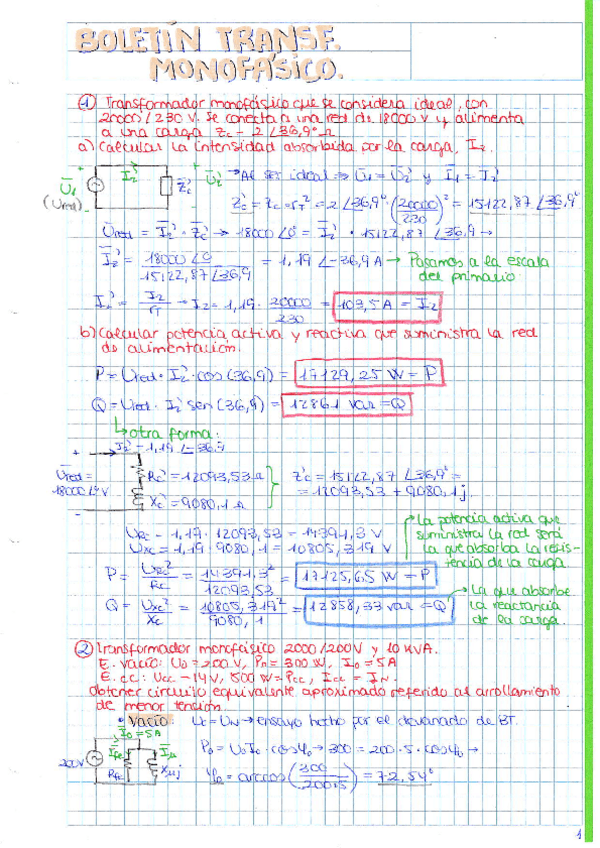 BOLETÍN TRANSF.
MONOFÁSICO.
① Transformador monofásico que se considera ideal, con
20000/230 V. se conecta a una red de 18000 V y alimenta
a una carga Zc - 2∠36,9° Ω
a) Calcular la intensidad absorbida por la carga, I2.
+ I2' + → Al ser ideal ⇒ Ū1 = Ū2' y Ī1 = Ī2'
Ū1 (Ured) Z̄c' Ū2'
Z̄c' = Z̄c · rT² = 2∠36,9° · (20000/230)² = 15122,87∠36,9°
Ūred = Ī2' · Z̄c' → 18000∠0° = Ī2' · 15122,87∠36,9 →
Ī2' = 18000∠0 / 15122,87∠36,9 = 1,19∠-36,9 A → Pasamos a la escala
del primario
I2' = I2/rT → I2 = 1,19 · 20000/230 = 103,5 A = I2
b) Calcular potencia activa y reactiva que suministra la red
de alimentación.
P = Ured · I2' · cos(36,9) = 17129,25 W = P
Q = Ured · I2' sen(36,9) = 12861 var = Q
↳ otra forma:
+ I2' - 1,19∠-36,9
Ūred = 18000∠0° V
Rc' = 12093,53 Ω
Xc' = 9080,1 Ω
Z̄c' = 15122,87∠36,9° =
= 12093,53 + 9080,1j.
URc - 1,19 · 12093,53 = 14391,3 V
UXc = 1,19 · 9080,1 = 10805,319 V
→ La potencia activa que
suministra la red será
la que absorba la resis-
tencia de la carga.
P = URc²/Rc = 14391,3²/12093,53 = 17125,65 W = P
Q = UXc²/Xc = 10805,319²/9080,1 = 12858,33 var = Q
→ La que absorbe
la reactancia
de la carga.
② Transformador monofásico 2000/200V y 10 KVA.
E. vacío: U0 = 200 V, P0 = 300 W, I0 = 5A
E. cc: Ucc - 14V, 1500 W = Pcc, Icc = IN.
Obtener circuito equivalente aproximado referido al arrollamiento
de menor tensión.
• Vacío: U0 = UN → ensayo hecho por el devanado de BT.
Ī0 = 5A
200V ĪFe RFe Īμ Xμj
P0 = U0 I0 · cosφ0 → 300 = 200 · 5 · cosφ0 →
φ0 = arccos(300/200·5) = 72,54°
1